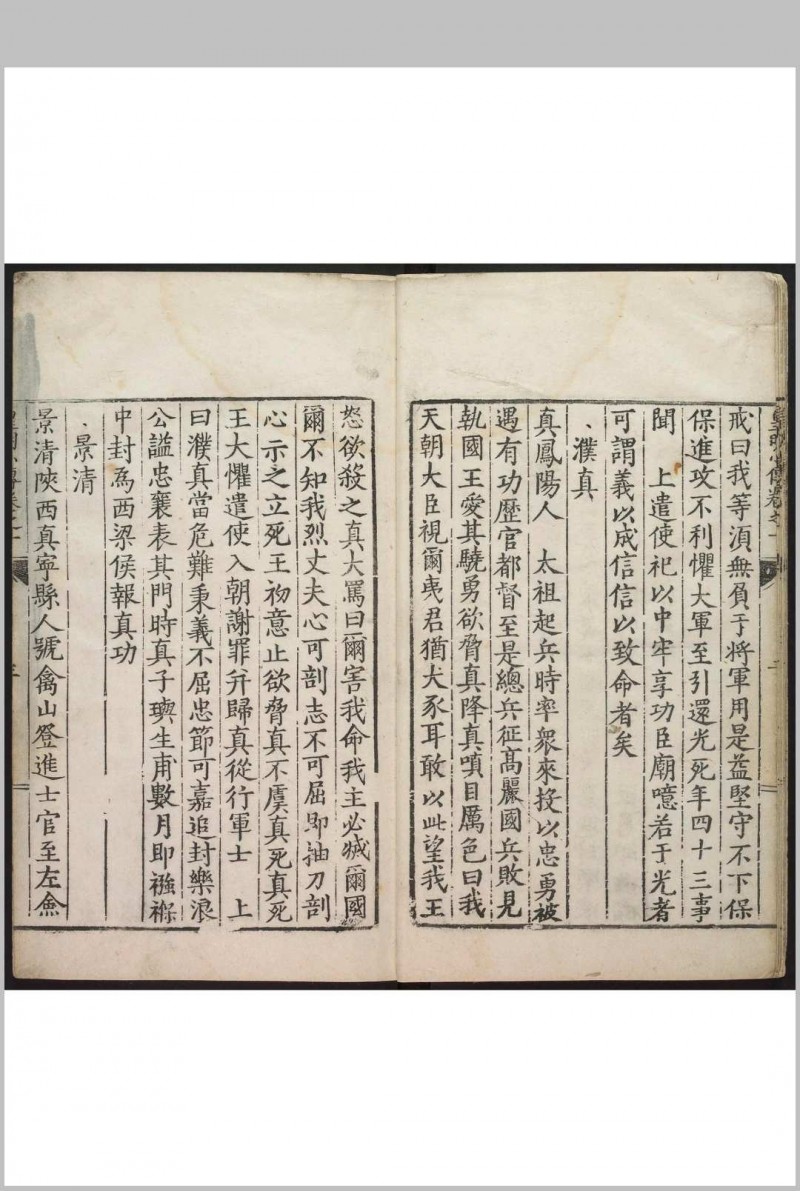 戒曰我等湏無負于將軍用是益堅守不下保
保進攻不利懼大軍至引還光死年四十三事
聞　上遣使祀以中牢享功臣廟噫若于光者
可謂義以成信信以致命者矣
、濮真
真鳳陽人　太祖起兵時率衆來投以忠勇被
遇有功歷官都督至是總兵征髙麗國兵敗見
執國王愛其驍勇欲脅真降真嗔目厲色曰我
天朝大臣視爾夷君猶犬豕耳敢以此望我王
怒欲殺之真大罵曰爾害我命我主必滅爾國
爾不知我烈丈夫心可剖志不可屈即抽刀剖
心示之立死王初意止欲脅真不虞真死真死
王大懼遣使入朝謝罪并歸真從行軍士　上
曰濮真當危難秉義不屈忠節可嘉追封樂浪
公謚忠襄表其門時真子璵生甫數月即襁褓
中封爲西梁侯報真功
、景清
景清陝西真寧縣人號禽山登進士官至左僉